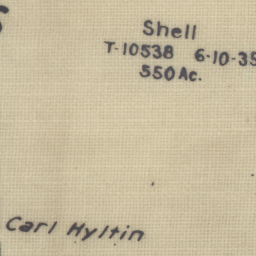 Shell
T-10538 6-10-35
550 Ac.
Carl Hyltin